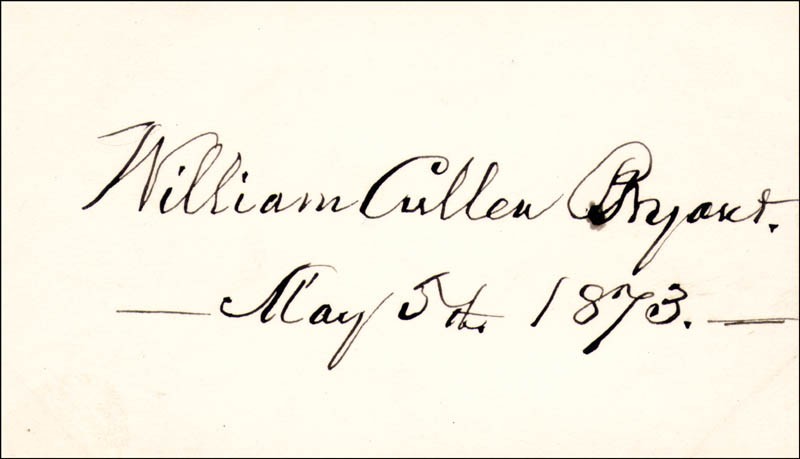 William Cullen Bryant.
— May 5th. 1873. —